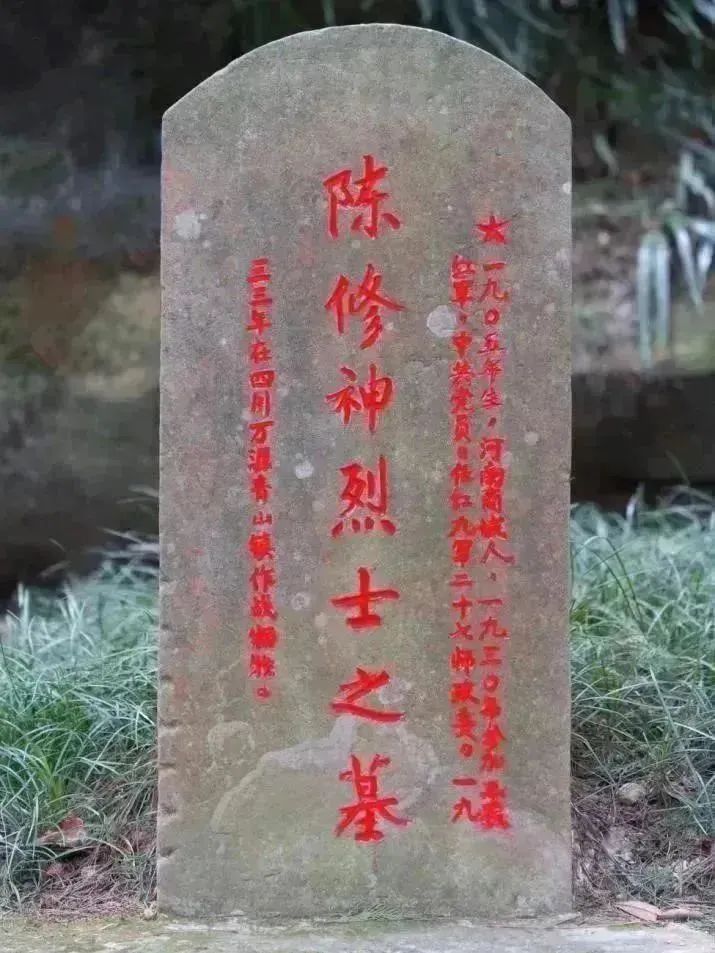 陈修神烈士之墓
★一九〇五年生，河南商城人，一九三〇年参加工农
红军，中共党员。任红九军二十七师政委。一九
三三年在四川万源青山镇作战牺牲。